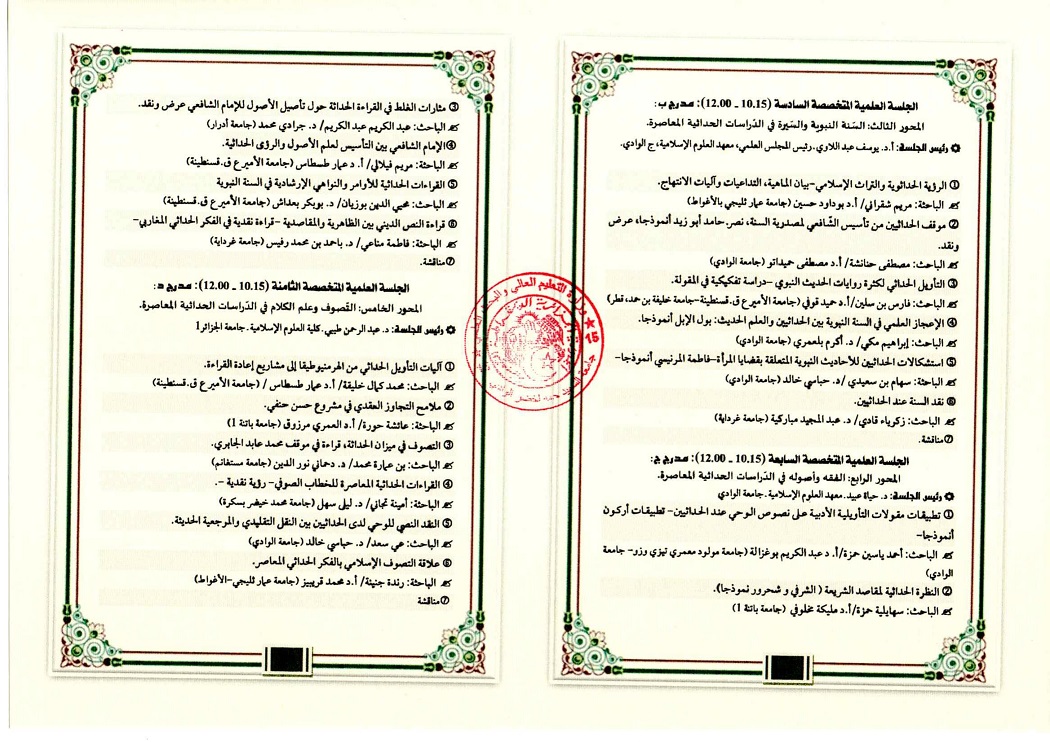 الجلسة العلمية المتخصصة السادسة (10.15 ـ 12.00): مدرج ب:
المحور الثالث: السّنة النبوية والسّيرة في الدّراسات الحداثية المعاصرة.
رئيس الجلسة: أ.د. يوسف عبد اللاوي.رئيس المجلس العلمي، معهد العلوم الإسلامية، ج الوادي.
① الرؤية الحداثوية والتراث الإسلامي-بيان الماهية، التداعيات وآليات الانتهاج.
الباحثة: مريم شقراني/ أ.د بوداود حسين (جامعة عمار ثليجي بالأغواط)
② موقف الحداثيين من تأسيس الشّافعي لمصدرية السنة، نصر.حامد أبو زيد أنموذجا، عرض
ونقد.
الباحث: مصطفى حنانشة/ أ.د مصطفى حميداتو (جامعة الوادي)
③ التأويل الحداثي لكثرة روايات الحديث النبوي -دراسة تفكيكية في المقولة.
الباحث: فارس بن سلين/ أ.د حميد قوفي (جامعة الأمير ع ق. قسنطينة-جامعة خليفة بن حمد، قطر)
④ الإعجاز العلمي في السنة النبوية بين الحداثيين والعلم الحديث: بول الإبل أنموذجا.
الباحث: إبراهيم مكي/ د. أكرم بلعمري (جامعة الوادي)
⑤ استشكالات الحداثيين للأحاديث النبوية المتعلقة بقضايا المرأة-فاطمة المرنيسي أنموذجا-
الباحثة: سهام بن سعيدي /د. حباسي خالد (جامعة الوادي)
⑥ نقد السنة عند الحداثيين.
الباحث: زكرياء قادي/ د. عبد المجيد مباركية (جامعة غرداية)
⑦مناقشة.
الجلسة العلمية المتخصصة السابعة (10.15 ـ 12.00): مدرج ج:
المحور الرابع: الفقه وأصوله في الدّراسات الحداثية المعاصرة.
رئيس الجلسة: د. حياة عبيد. معهد العلوم الإسلامية.جامعة الوادي
① تطبيقات مقولات التأويلية الأدبية على نصوص الوحي عند الحداثيين- تطبيقات أركون
أنموذجا-
الباحث: أحمد ياسين حمزة/أ. د عبد الكريم بوغزالة (جامعة مولود معمري تيزي وزر- جامعة
الوادي)
② النظرة الحداثية لمقاصد الشريعة ( الشرفي و شحرور نموذجا).
الباحث: سهايلية حمزة/أ.د مليكة مخلوفي (جامعة باتنة 1)
③ مثارات الغلط في القراءة الحداثة حول تأصيل الأصول للإمام الشافعي عرض ونقد.
الباحث: عبد الكريم عبد الكريم/ د. جرادي محمد (جامعة أدرار)
④الإمام الشافعي بين التأسيس لعلم الأصول والرؤى الحداثية.
الباحثة: مريم فيلالي/ أ.د عمار طسطاس (جامعة الأمير ع ق. قسنطينة)
⑤ القراءات الحداثية للأوامر والنواهي الإرشادية في السنة النبوية
الباحث: محيي الدين بوزيان/ د. بوبكر بعداش (جامعة الأمير ع ق.قسنطينة)
⑥ قراءة النص الديني بين الظاهرية والمقاصدية -قراءة نقدية في الفكر الحداثي المغاربي-
الباحثة: فاطمة مناعي/ د. باحمد بن محمد رفيس (جامعة غرداية)
⑦مناقشة.
الجلسة العلمية المتخصصة الثامنة (10.15 ـ 12.00): مدرج د:
المحور الخامس: التصوف وعلم الكلام في الدّراسات الحداثية المعاصرة.
رئيس الجلسة: د. عبد الرحمن طيبي. كلية العلوم الإسلامية. جامعة الجزائر1
① آليات التأويل الحداثي من الهرمنيوطيقا إلى مشاريع إعادة القراءة.
الباحث: محمد كمال خليفة/ أ.د عمار طسطاس / (جامعة الأمير ع ق. قسنطينة)
② ملامح التجاوز العقدي في مشروع حسن حنفي.
الباحثة: عائشة حورة/ أ.د العمري مرزوق (جامعة باتنة 1)
③ التصوف في ميزان الحداثة، قراءة في موقف محمد عابد الجابري.
الباحث: بن عمارة محمد/ د. دحماني نور الدين (جامعة مستغانم)
④ القراءات الحداثية المعاصرة للخطاب الصوفي- رؤية نقدية -.
الباحثة: أمينة تجاني/ د. ليلى سهل (جامعة محمد خيضر بسكرة)
⑤ النقد النصي للوحي لدى الحداثيين بين النقل التقليدي والمرجعية الحديثة.
الباحث: عي سعد/ د. حباسي خالد (جامعة الوادي)
⑥ علاقة التصوف الإسلامي بالفكر الحداثي المعاصر.
الباحثة: رندة جنينة/ أ.د محمد قريبيز (جامعة عمار ثليجي-الأغواط)
⑦مناقشة
وزارة التعليم العالي والبحث العلمي
15